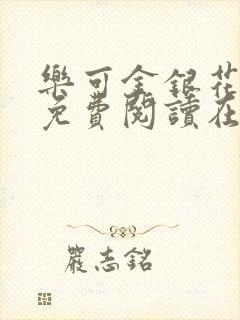 樂可金銀花
免費閱讀在
嚴志銘